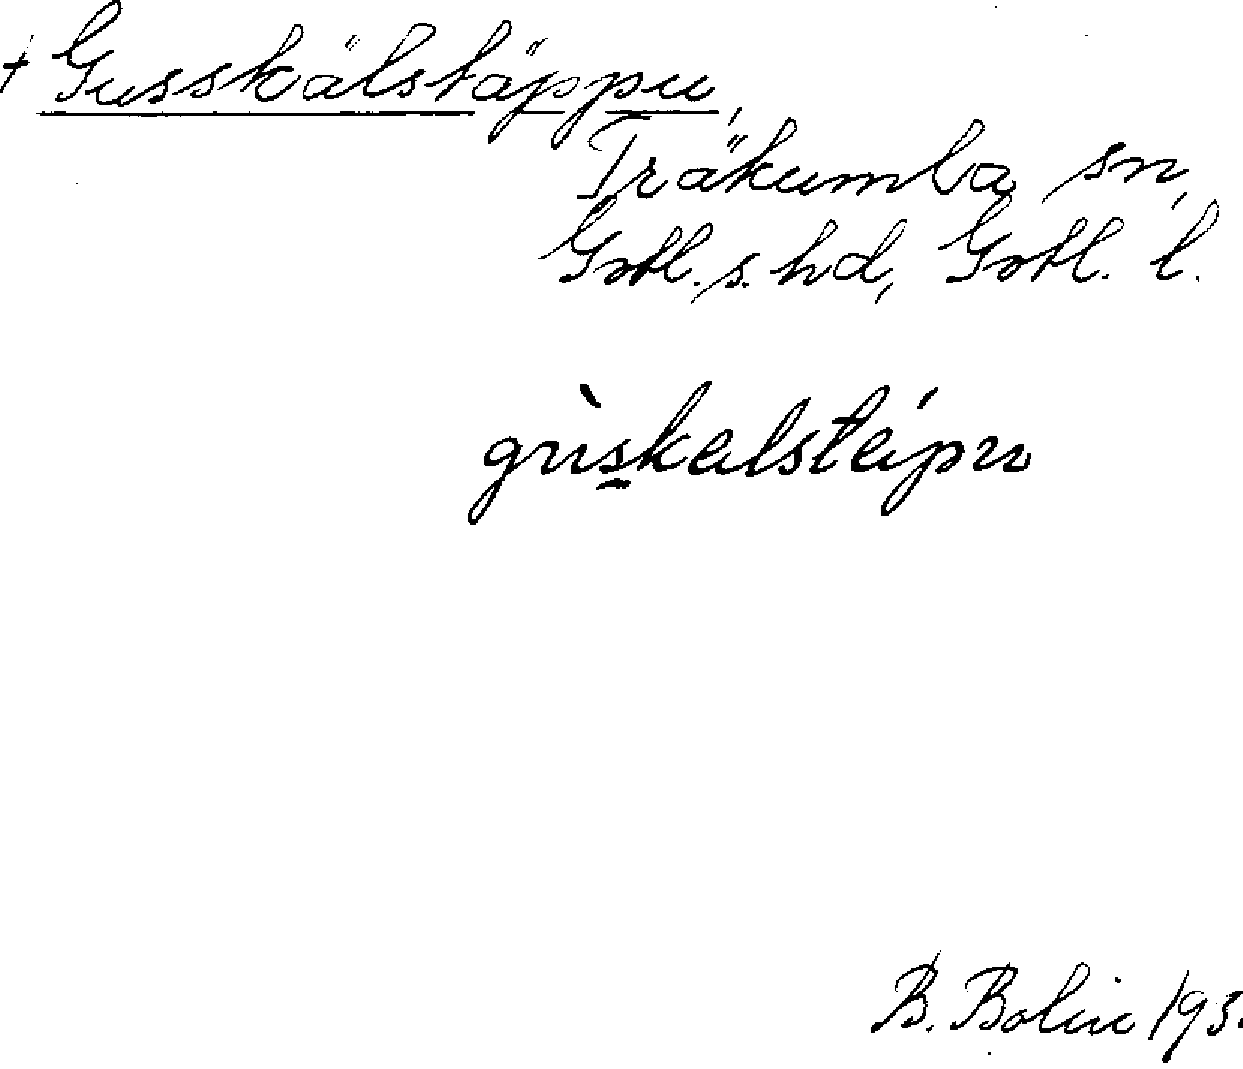 + Gusskälstäppu,
Träkumla sn,
Gotl. s. hd, Gotl. l.
gùskalstápu
B. Bolin 193